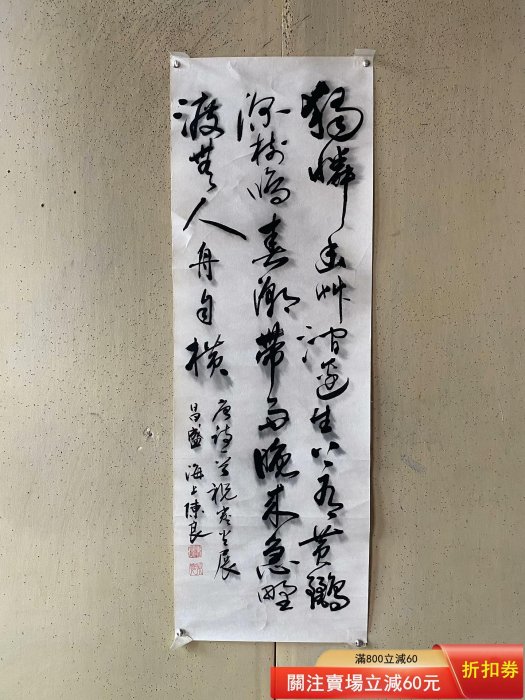 獨憐幽艸澗邊生上有黄鸝
深樹鳴春潮帶雨晚来急野
渡無人舟自横
唐詩一首祝展
昌盛 海上陳良
滿800立減60
關注賣場立減60元
折扣券